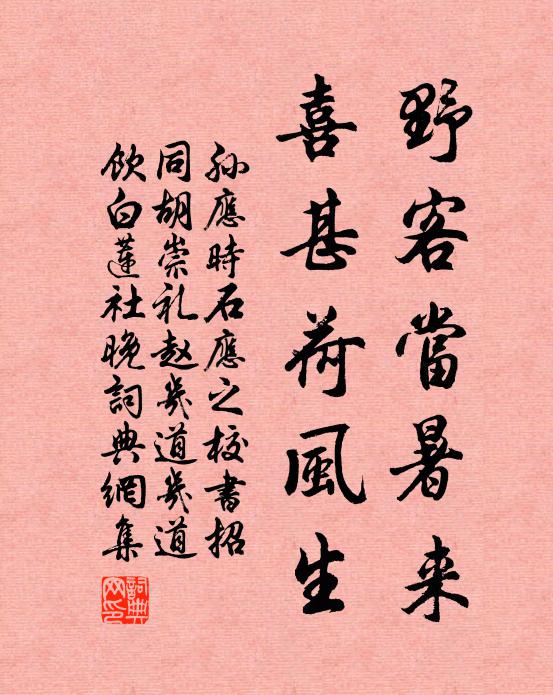 野客當暑来
喜甚荷風生
孙應時石應之校書招
同胡崇礼赵㡬道㡬道
飲白蓮社晚詞典網集
詞典网印